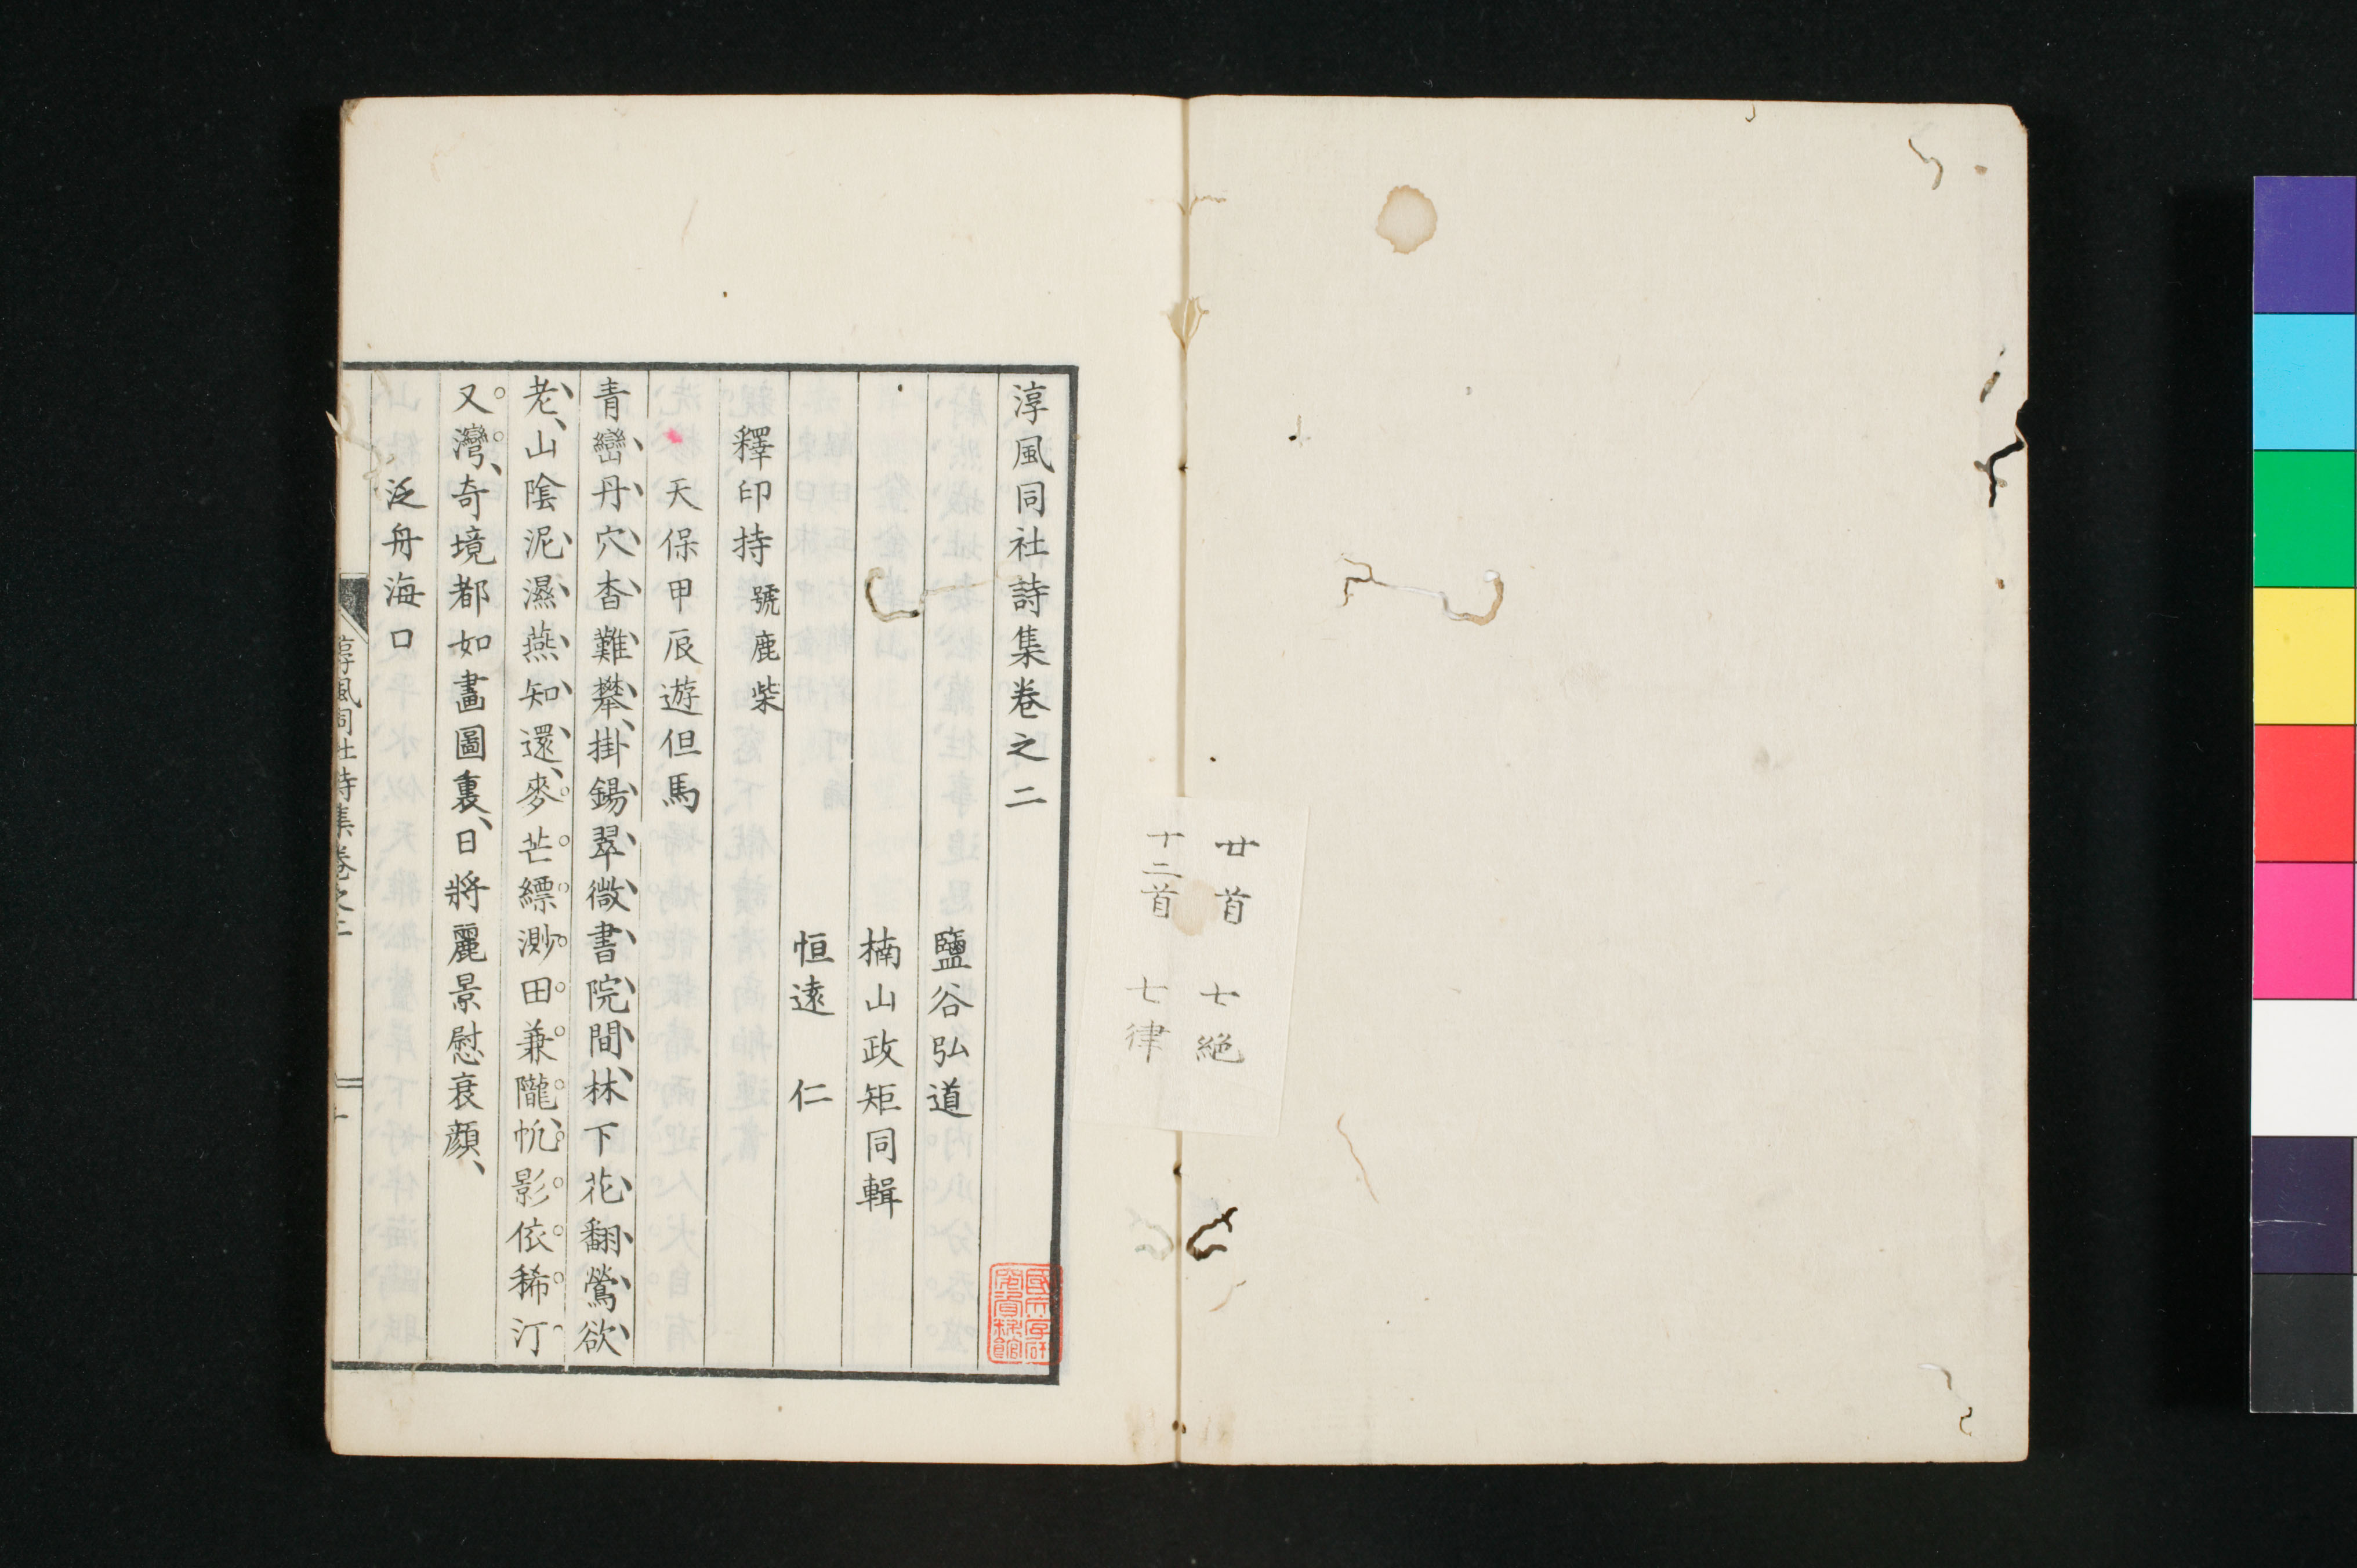 廿首　七絶
十二首　七律
淳風同社詩集卷之二
鹽谷弘道
楠山政矩同輯
恒遠　仁
釋印持 號鹿柴
天保甲辰遊但馬
青巒、丹、穴、杳、難、攀、掛錫、翠、微、書、院、間、林下花、翻、鶯、欲、
老、山陰泥、濕、燕、知、還、麥。芒。縹。渺。田。兼。隴、帆。影。依。稀。汀。
又。灣。、奇境都如畫圖裏、日將麗景慰衰顏、
泛舟海口
淳風同社詩集卷之二